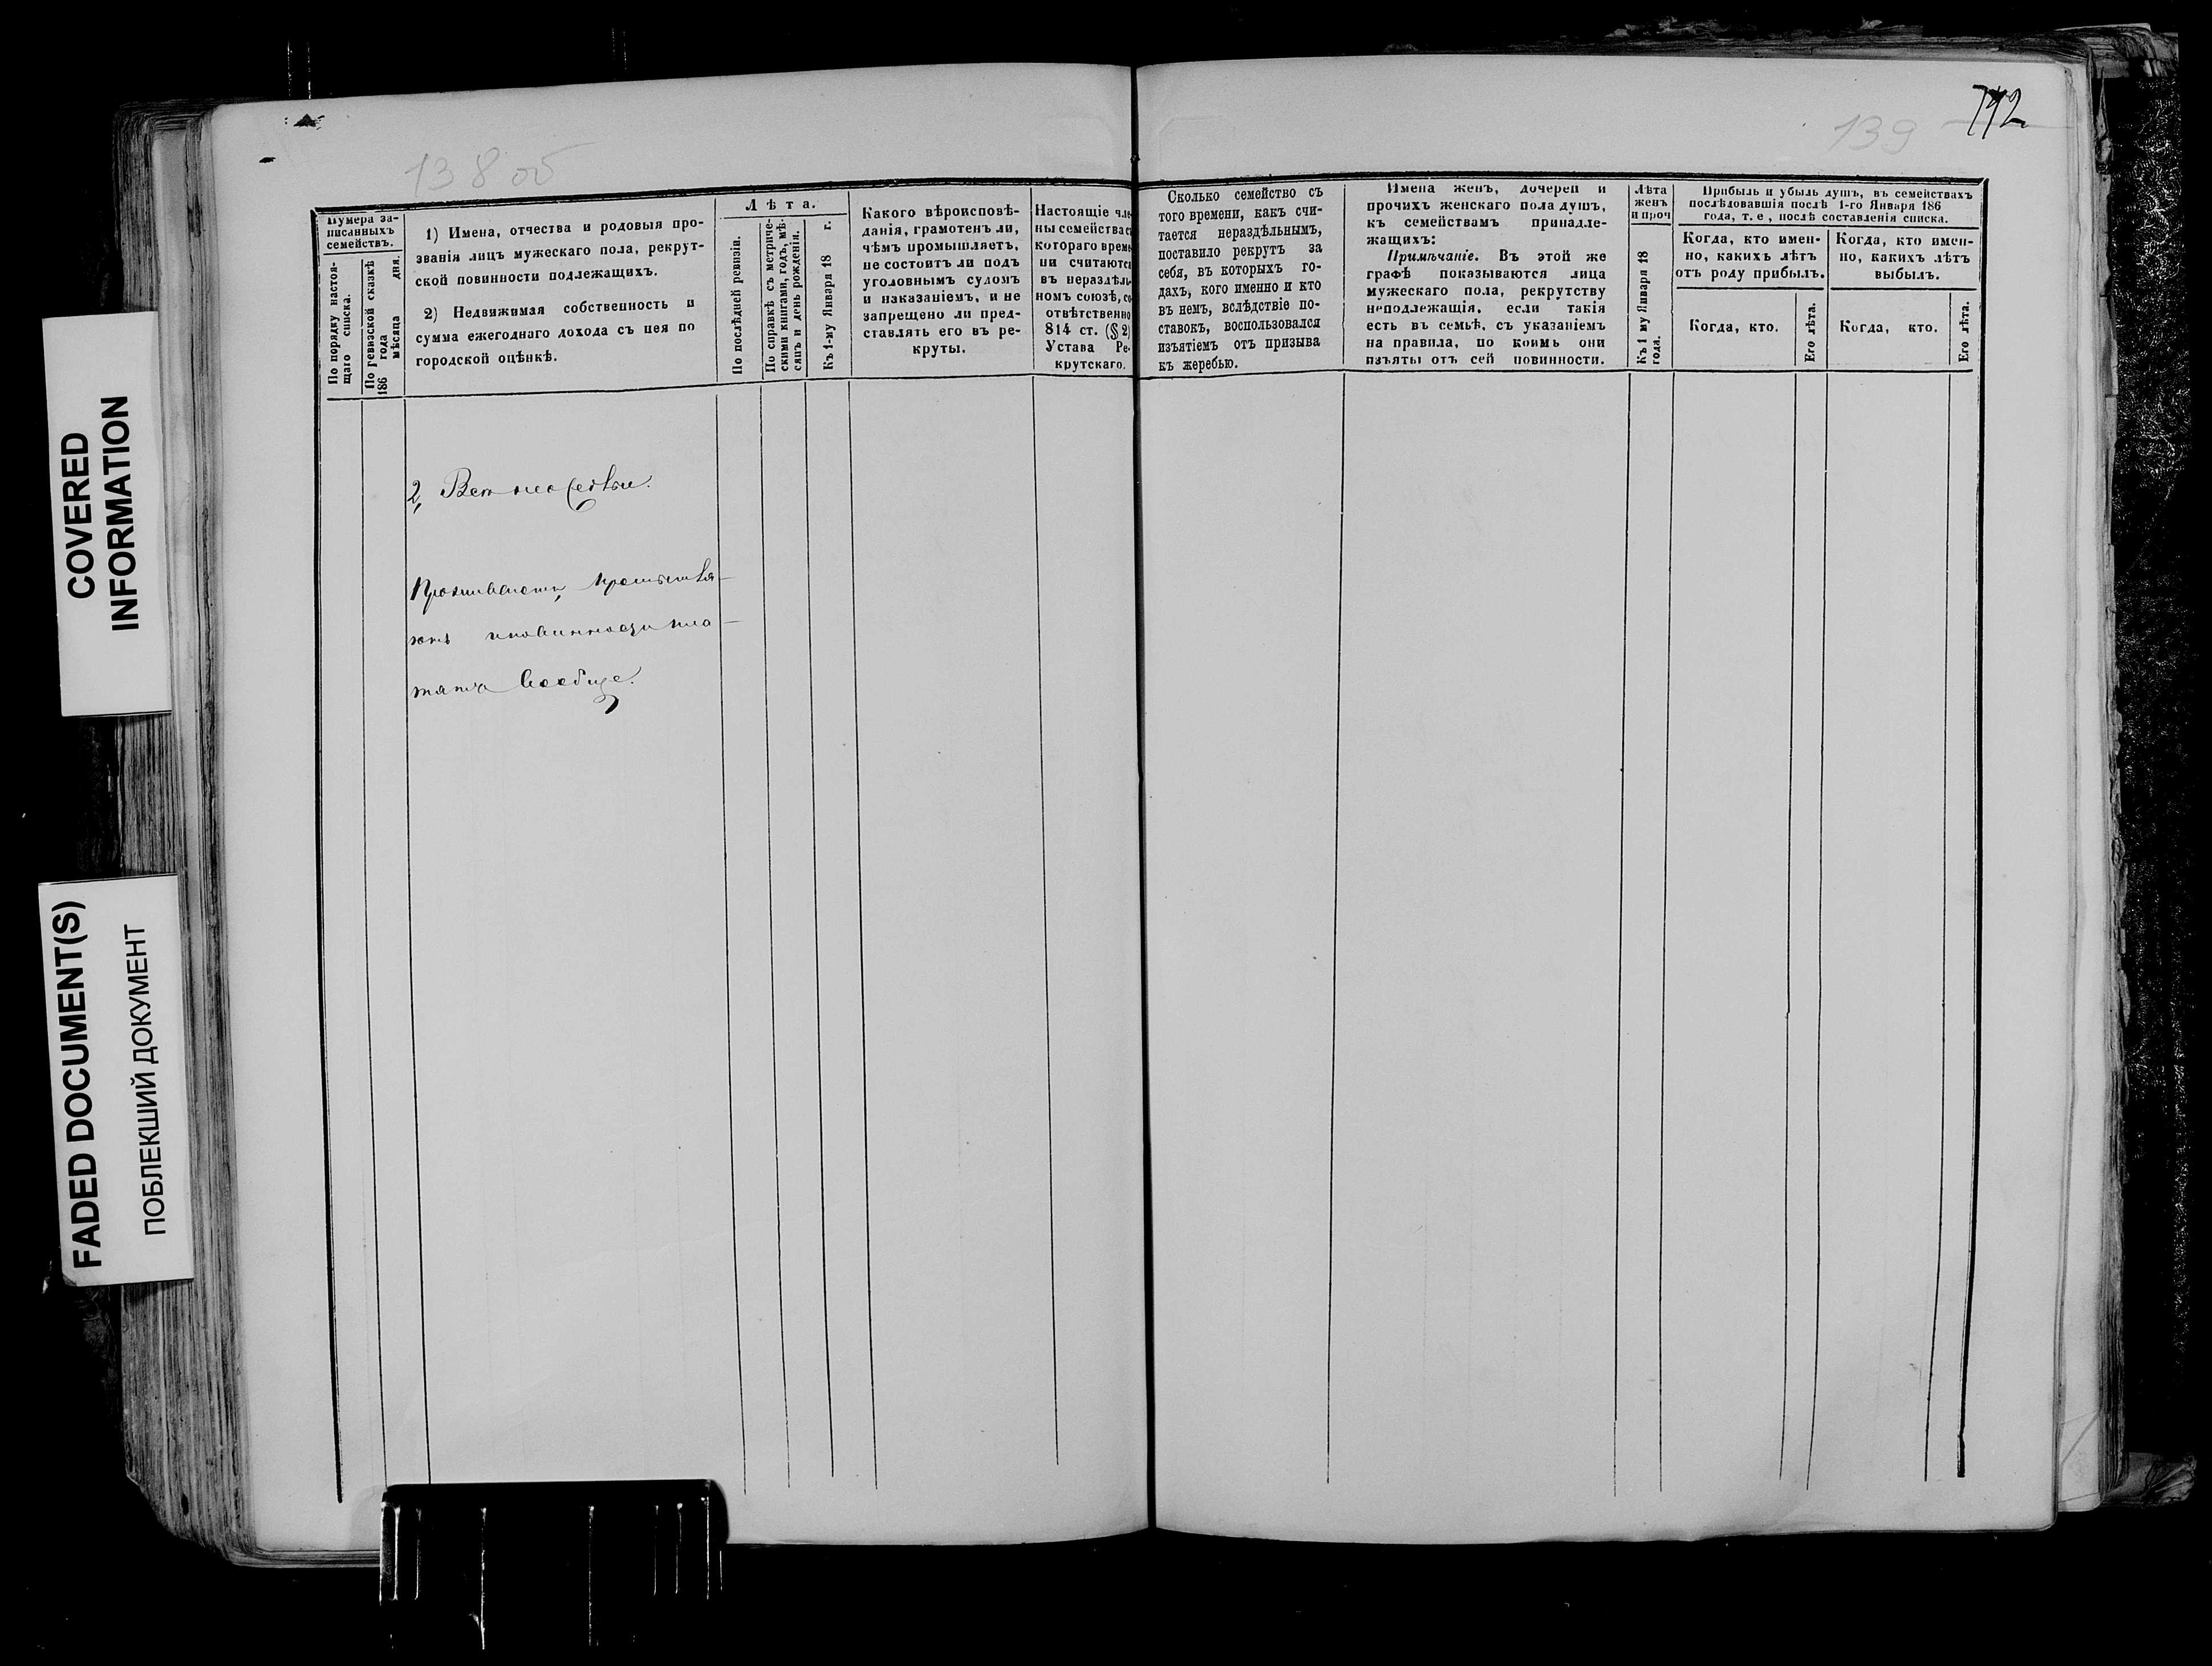 COVERED
INFORMATION
FADED DOCUMENT(S)
ПОБЛЕКШИЙ ДОКУМЕНТ
138 об
Нумера за-
писанныхъ
семействъ.
По порядку настоя-
щаго списка.
По ревизской сказкѣ
186 года
мѣсяца дня.
1) Имена, отчества и родовыя про-
званія лицъ мужескаго пола, рекрут-
ской повинности подлежащихъ.
2) Недвижимая собственность и
сумма ежегоднаго дохода съ нея по
городской оцѣнкѣ.
Лѣта.
По послѣдней ревизіи.
По справкѣ съ метриче-
скими книгами, годъ, мѣ-
сяцъ и день рожденія.
Къ 1-му Января 18 г.
Какого вѣроисповѣ-
данія, грамотенъ ли,
чѣмъ промышляетъ,
не состоитъ ли подъ
уголовнымъ судомъ
и наказаніемъ, и не
запрещено ли пред-
ставлять его въ ре-
круты.
Настоящіе чле
ны семейства съ
котораго време
ни считаются
въ нераздѣль
номъ союзѣ, со
отвѣтственно
814 ст. (§ 2)
Устава Ре-
крутскаго.
2,
Проживаютъ,
повинности пла-
тятъ вообще.
139
792
Сколько семейство съ
того времени, какъ счи-
тается нераздѣльнымъ,
поставило рекрутъ за
себя, въ которыхъ го-
дахъ, кого именно и кто
въ немъ, вслѣдствіе по-
ставокъ, воспользовался
изъятіемъ отъ призыва
къ жеребью.
Имена женъ, дочерей и
прочихъ женскаго пола душъ,
къ семействамъ принадле-
жащихъ:
Примѣчаніе. Въ этой же
графѣ показываются лица
мужескаго пола, рекрутству
неподлежащія, если такія
есть въ семьѣ, съ указаніемъ
на правила, по коимъ они
изъяты отъ сей повинности.
Лѣта
женъ
и проч
Къ 1 му Января 18
года.
Прибыль и убыль душъ, въ семействахъ
послѣдовавшія послѣ 1-го Января 186
года, т. е, послѣ составленія списка.
Когда, кто имен-
но, какихъ лѣтъ
отъ роду прибылъ.
Когда, кто.
Его лѣта.
Когда, кто имен-
но, какихъ лѣтъ
выбылъ.
Когда, кто.
Его лѣта.